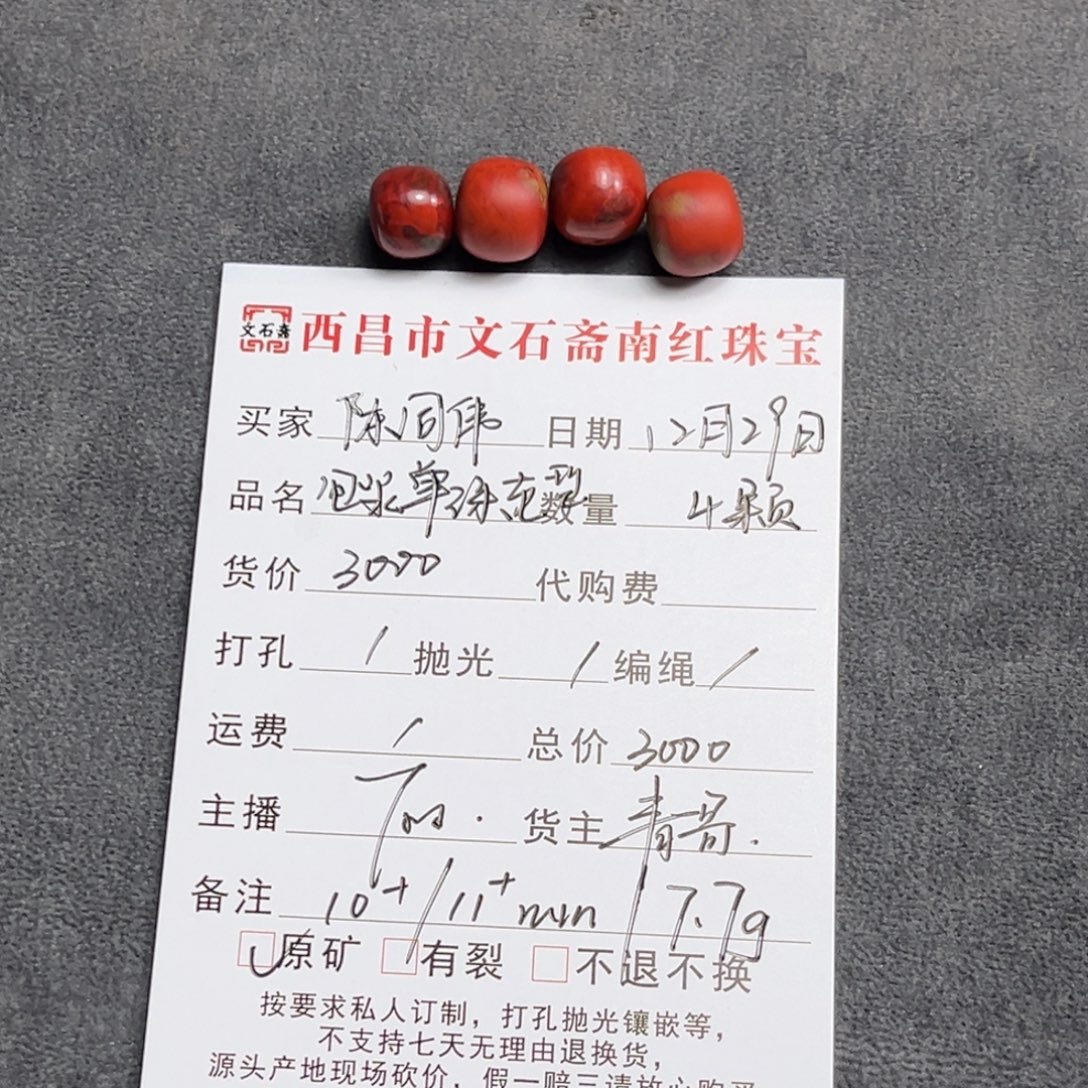 文石斋 西昌市文石斋南红珠宝
买家 陈同伟 日期 12月29日
品名 包浆单珠克 数量 4颗
货价 3000 代购费
打孔 / 抛光 / 编绳 /
运费 / 总价 3000
主播 货主 青哥.
备注 10+/11+mm/7.7g
原矿 有裂 不退不换
按要求私人订制，打孔抛光镶嵌等，
不支持七天无理由退换货，
源头产地现场砍价，假一赔三请放心购买